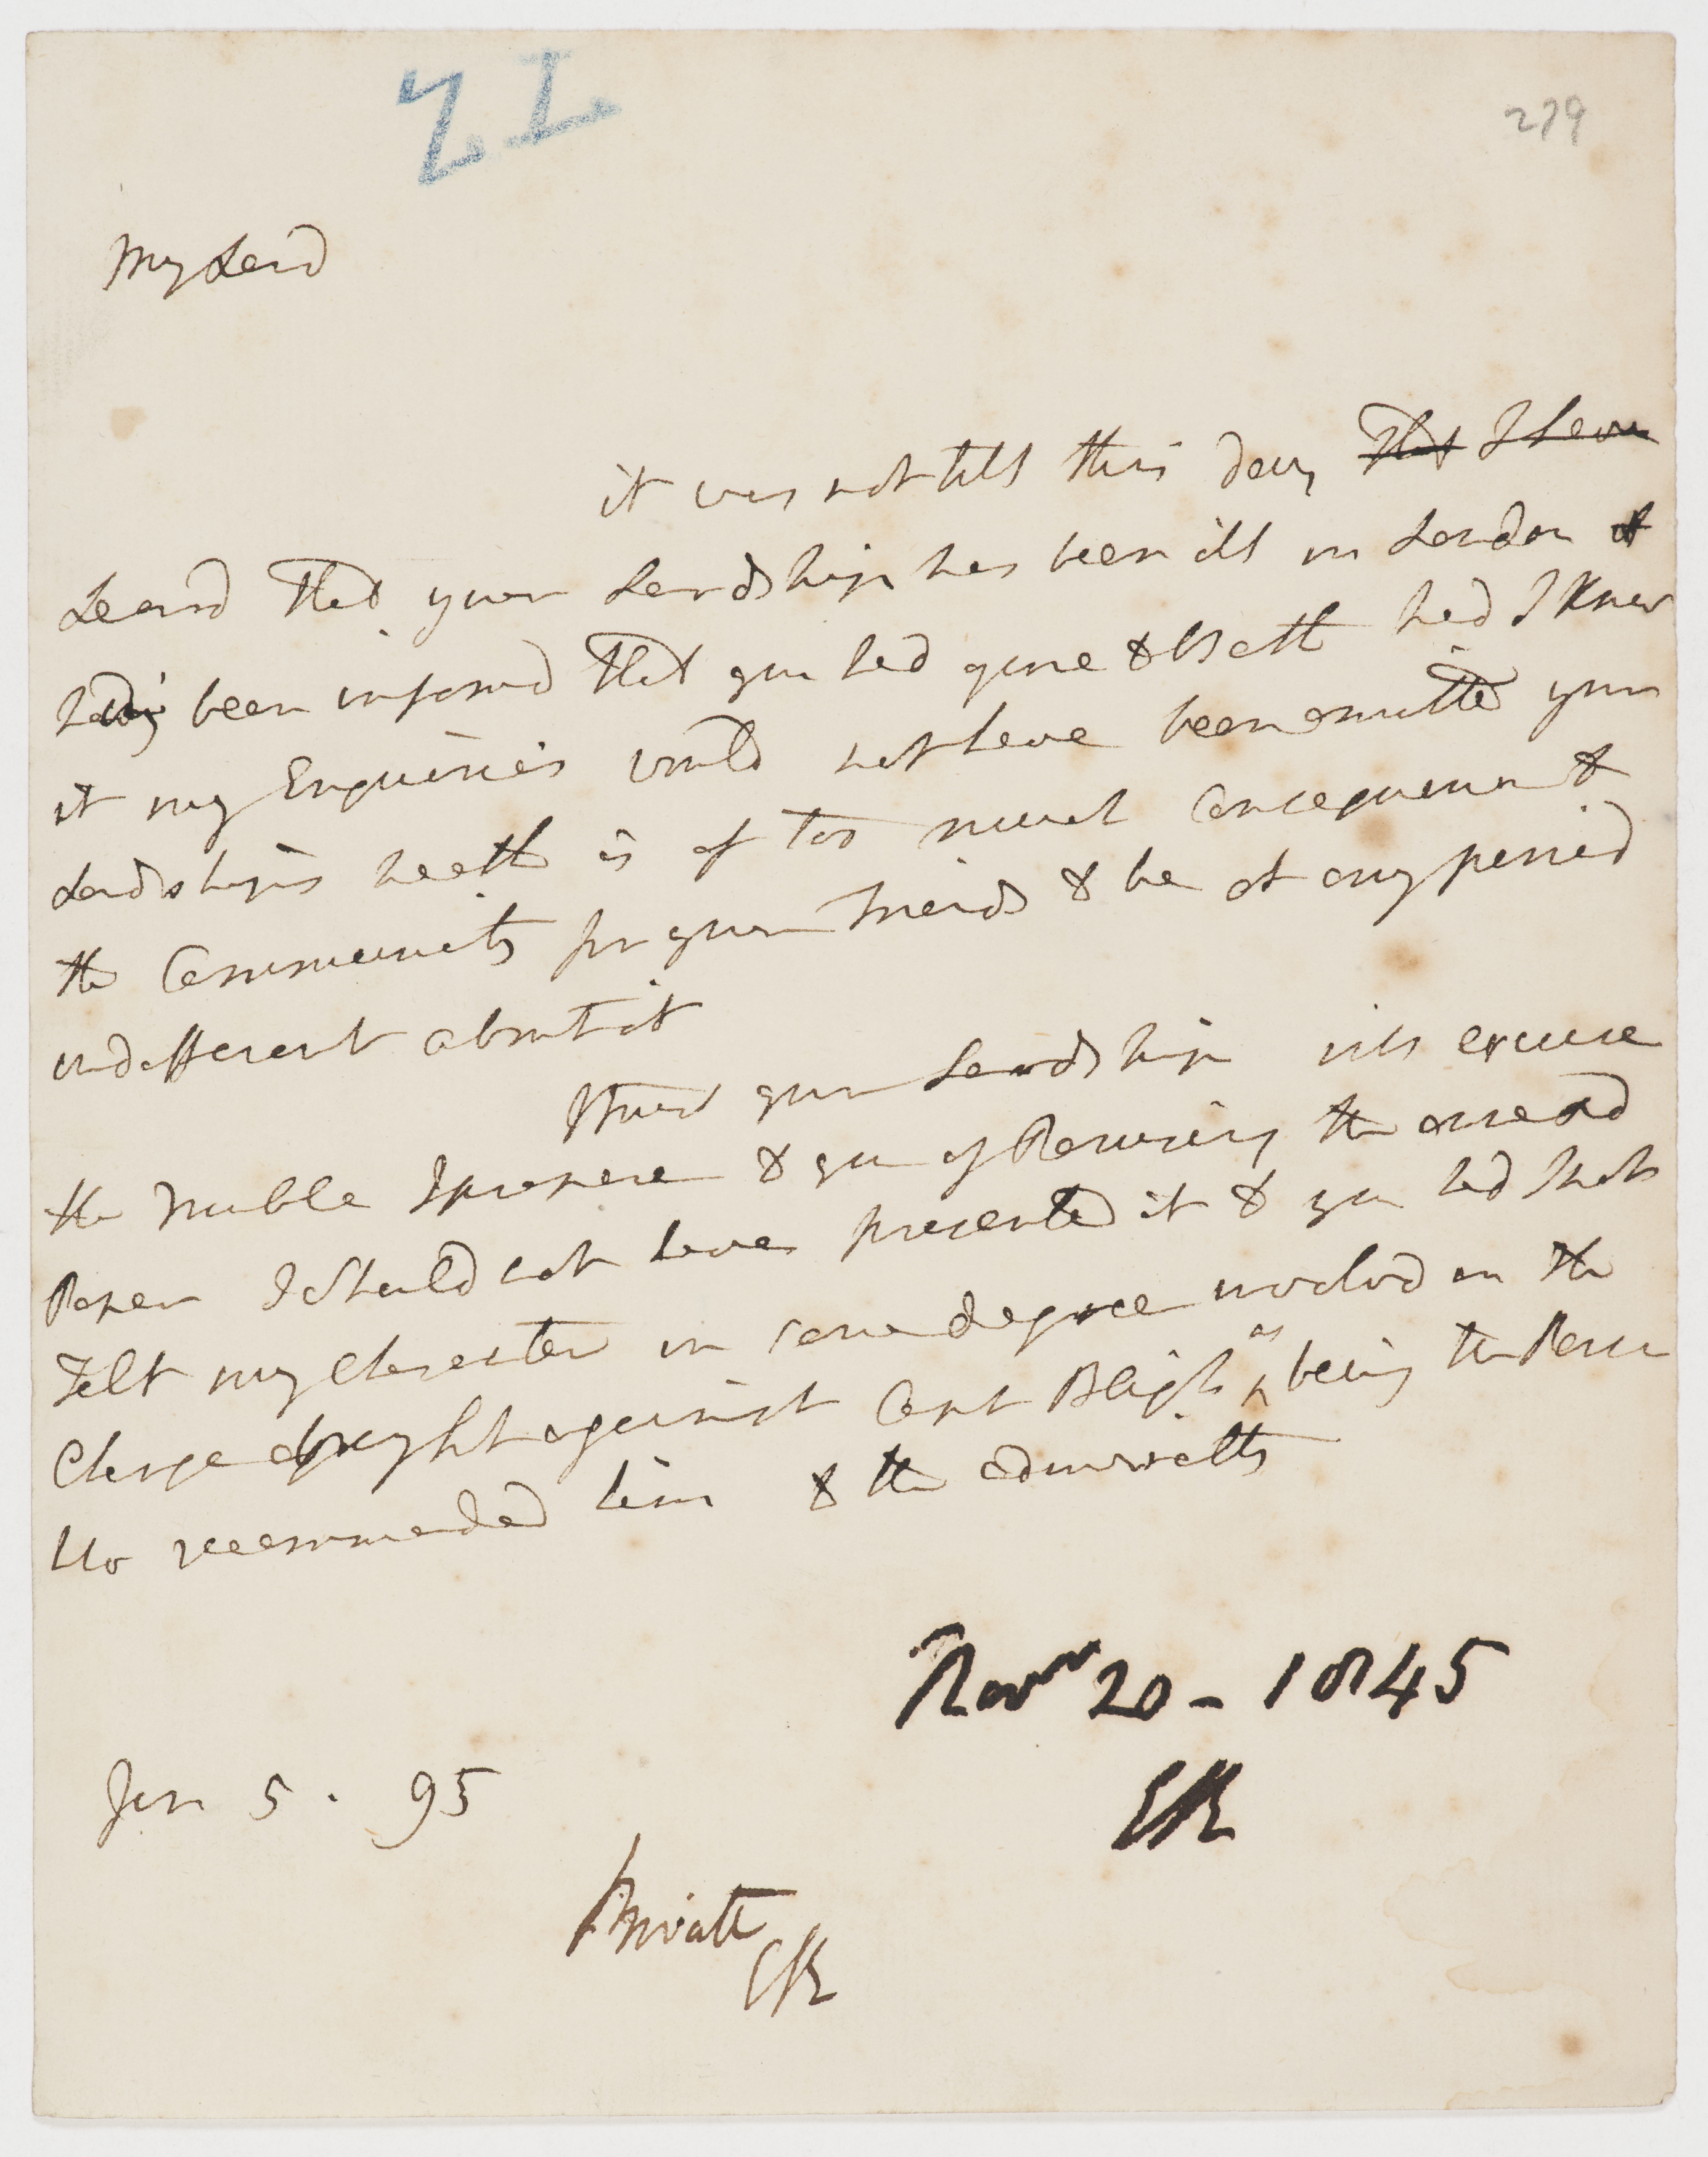 279
My Lord
it was not till this day that I have
Learnd that your Lordship has been ill in London
having been informd that you had gone to Bath had I Known
it my Enquiries would not have been omitted your
Lordships health is of too much consequence to
the Community for your Friends to be at any period
indifferent about it
I trust your Lordship will excuse
the trouble I propose to you of Perusing the annexd
Paper I should not have presented it to you had I not
Felt my Character in some degree involvd in the
Charge brought against Capt Bligh as being the Person
Who recommended him to the admiralty
Novr 20 - 1845
Jan 5 . 95
Private